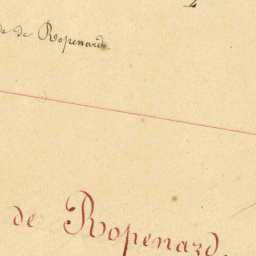 2
de de Ropenard
de Ropenard.